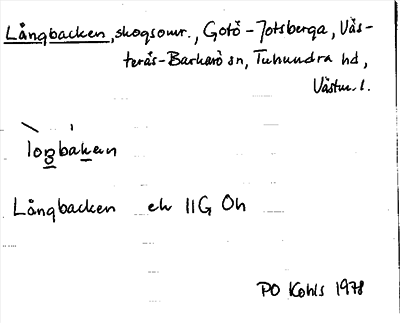 Långbacken, skogsomr., Gotö-Jotsberga, Väs-
terås-Barkarö sn, Tuhundra hd,
Västm. l.
loŋbakan
Långbacken ek 11G Öh
PO Kohls 1978